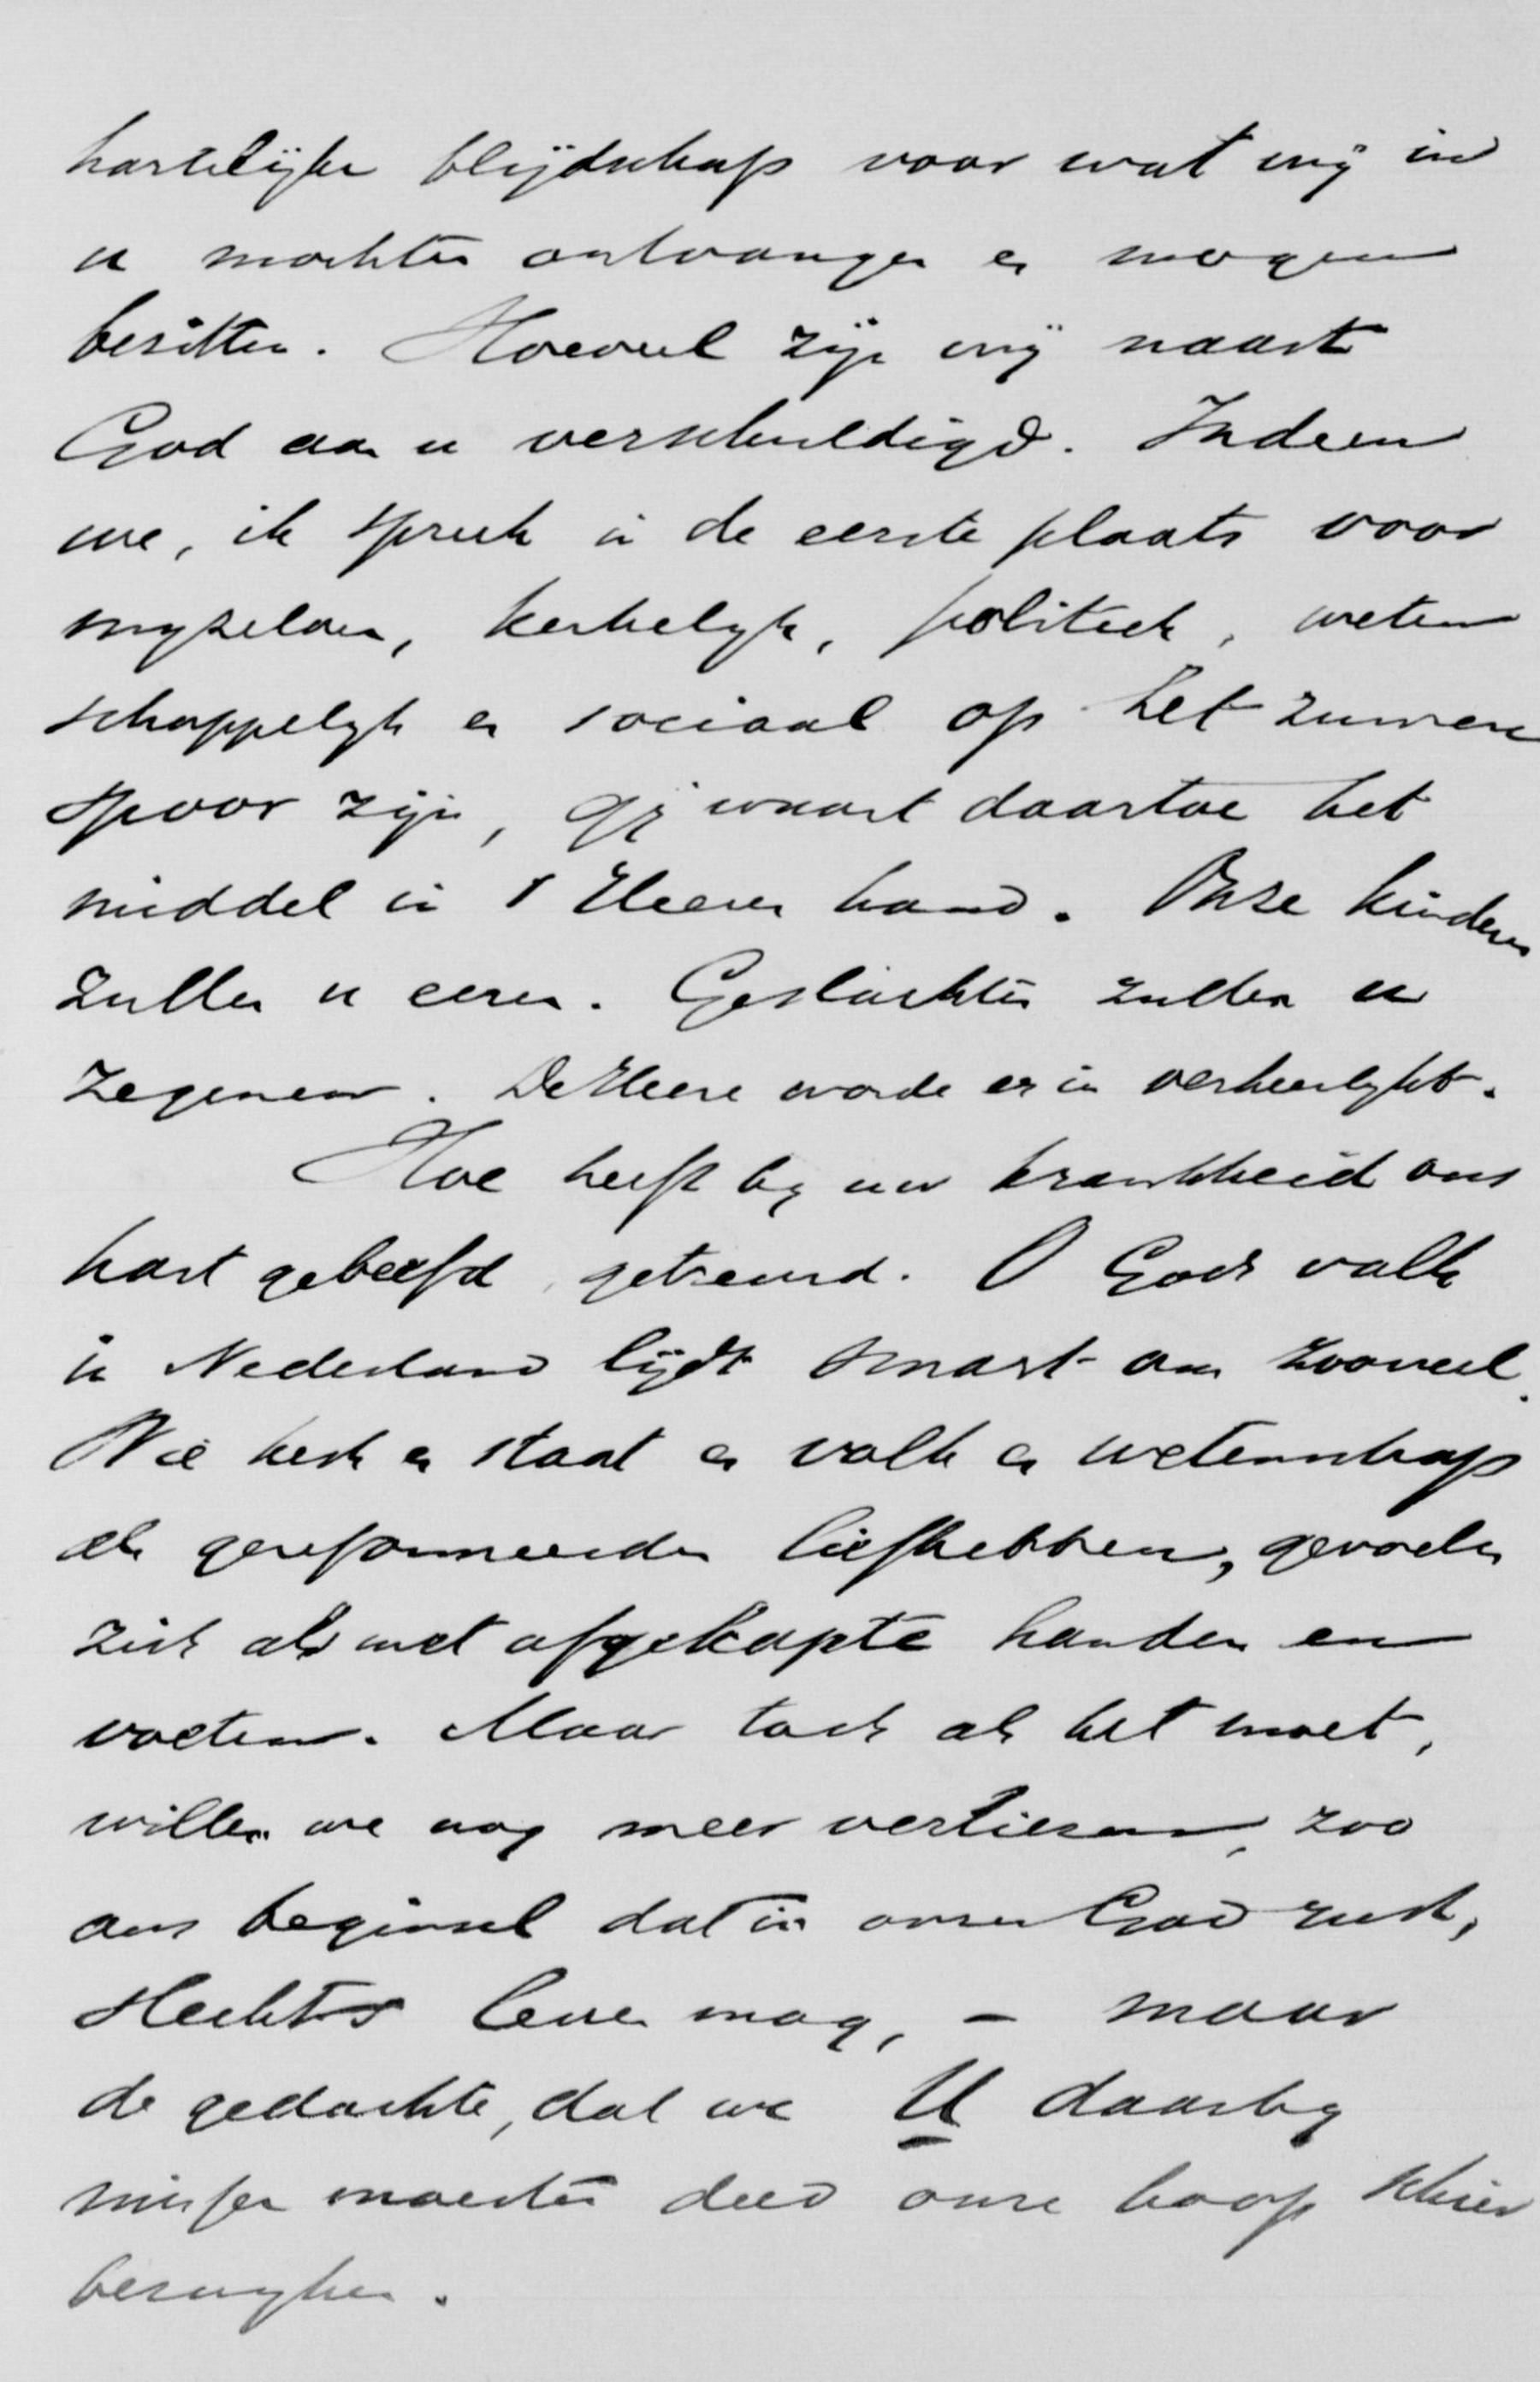 hartelijke blijdschap voor wat wij in
u mochten ontvangen en mogen
bezitten. Hoeveel zijn wij naast
God aan u verschuldigd. Indien
we, ik spreek in de eerste plaats voor
myzelven, kerkelyk, politiek, weten
schappelyk en sociaal op het zuivere
spoor zijn, gij waart daartoe het
middel in 's Heeren hand. Onze kinderen
zullen u eeren. Geslachten zullen u
zegenen. De Heere worde er in verheerlykt.
Hoe heeft by uw krankheid ons
hart gebeefd, getreurd. O Gods volk
in Nederland lijdt smart om zooveel.
Wie kerk en staat en volk en wetenschap
als gereformeerden liefhebben, gevoelen
zich als met afgekapte handen en
voeten. Maar toch als het moet,
willen we nog meer verliezen, zoo
ons beginsel dat in onzen God rust,
slechts leven mag, - maar
de gedachte, dat we U daarby
missen moesten deed onze hoop schier
bezwyken.